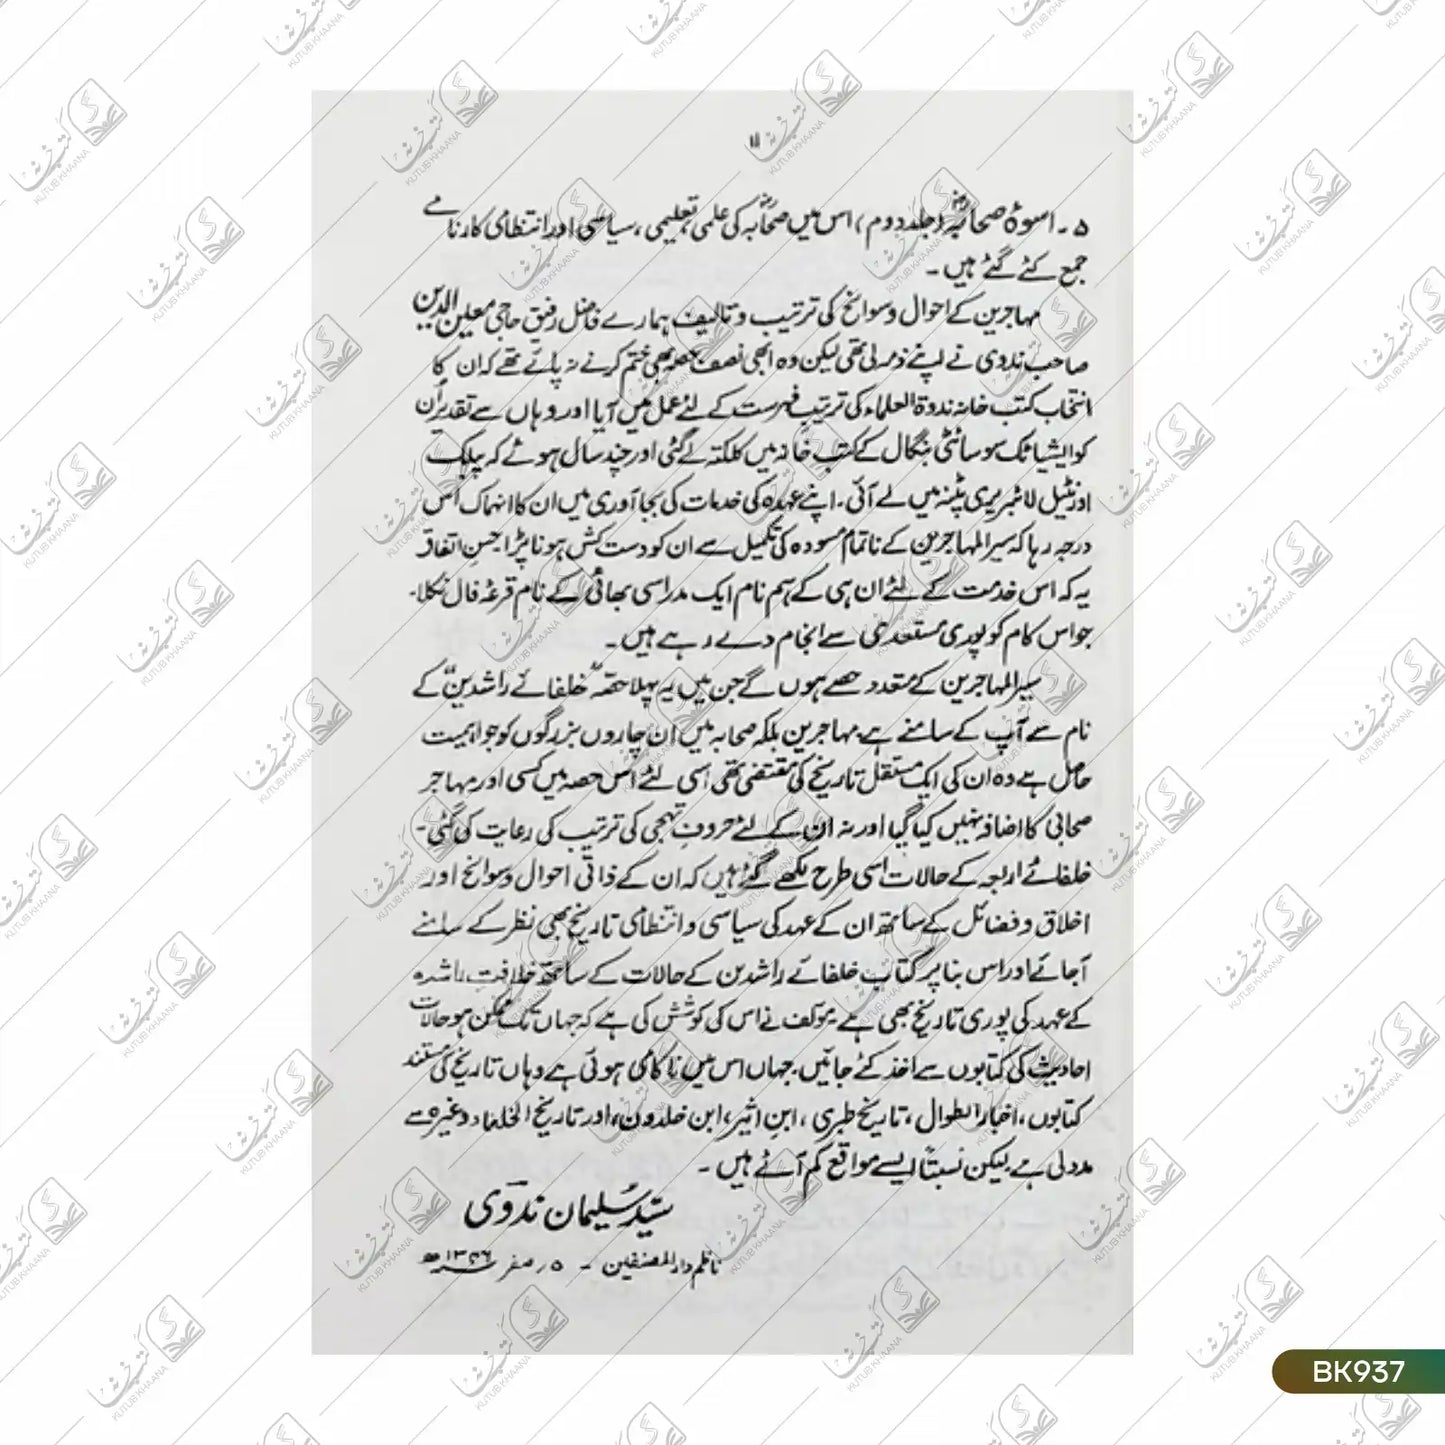 ۱۱
۵۔ اسوۂ صحابہؓ (جلد دوم) اس میں صحابہؓ کی علمی، تعلیمی، سیاسی اور انتظامی کارنامے
جمع کئے گئے ہیں۔
مہاجرین کے احوال و سوانح کی ترتیب و تالیف ہمارے فاضل رفیق حاجی معین الدین
صاحب ندوی نے اپنے ذمہ لی تھی لیکن وہ ابھی نصف حصہ بھی ختم کرنے نہ پائے تھے کہ ان کا
انتخاب کتب خانہ ندوۃ العلماء کی ترتیب فہرست کے لئے عمل میں آیا اور وہاں سے تقدیر اُن
کو ایشیاٹک سوسائٹی بنگال کے کتب خانہ میں کلکتہ لے گئی اور چند سال ہوئے کہ پبلک
اورنٹیل لائبریری پٹنہ میں لے آئی۔ اپنے عہدہ کی خدمات کی بجا آوری میں ان کا انہماک اس
درجہ رہا کہ سیر المہاجرین کے ناتمام مسودہ کی تکمیل سے ان کو دست کش ہونا پڑا حسنِ اتفاق
یہ کہ اس خدمت کے لئے ان ہی کے ہم نام ایک مدراسی بھائی کے نام قرعۂ فال نکلا۔
جو اس کام کو پوری مستعدی سے انجام دے رہے ہیں۔
سیر المہاجرین کے متعدد حصے ہوں گے جن میں یہ پہلا حصہ خلفائے راشدینؓ کے
نام سے آپ کے سامنے ہے۔ مہاجرین بلکہ صحابہ میں ان چاروں بزرگوں کو جو اہمیت
حاصل ہے وہ ان کی ایک مستقل تاریخ کی مقتضی تھی اسی لئے اس حصہ میں کسی اور مہاجر
صحابی کا اضافہ نہیں کیا گیا اور نہ ان کے لئے حروفِ تہجی کی ترتیب کی رعایت کی گئی۔
خلفائے اربعہ کے حالات اسی طرح لکھے گئے ہیں کہ ان کے ذاتی احوال و سوانح اور
اخلاق و فضائل کے ساتھ ان کے عہد کی سیاسی و انتظامی تاریخ بھی نظر کے سامنے
آجائے اور اس بنا پر کتاب خلفائے راشدین کے حالات کے ساتھ خلافتِ راشدہ
کے عہد کی پوری تاریخ بھی ہے۔ مولف نے اس کی کوشش کی ہے کہ جہاں تک ممکن ہو حالات
احادیث کی کتابوں سے اخذ کئے جائیں۔ جہاں اس میں ناکامی ہوئی ہے وہاں تاریخ کی مستند
کتابوں، اخبار الطوال، تاریخ طبری، ابنِ اثیر، ابن خلدون، اور تاریخ الخلفاء وغیرہ سے
مدد لی ہے۔ لیکن نسبتاً ایسے مواقع کم آئے ہیں۔
سید سلیمان ندوی
ناظم دار المصنفین - ۵ر صفر ۱۳۴۶ھ
BK937
کتب خانہ
KUTUB KHAANA